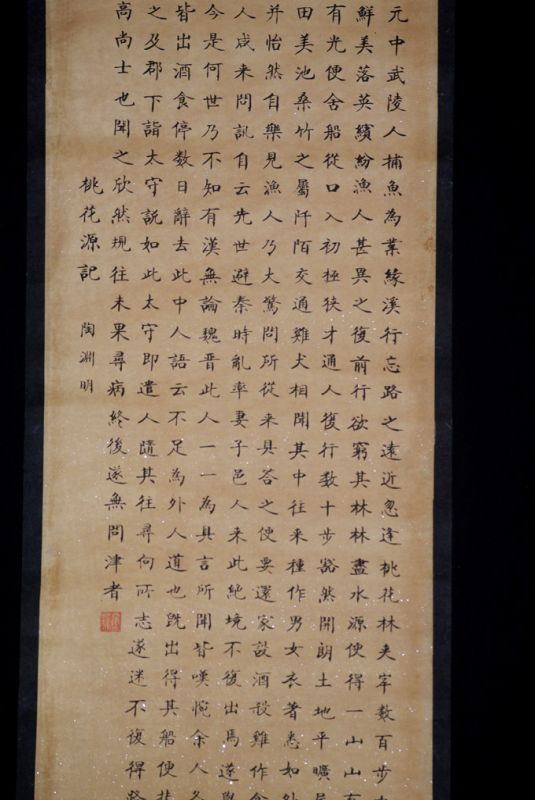 元中武陵人捕魚為業緣溪行忘路之遠近忽逢桃花林夾岸数百步
鮮美落英繽紛漁人甚異之復前行欲窮其林林盡水源便得一山山有
有光便舍船從口入初極狹才通人復行数十步豁然開朗土地平曠屋
田美池桑竹之屬阡陌交通雞犬相聞其中往來種作男女衣著悉如外
并怡然自樂見漁人乃大驚問所從來具答之便要還家設酒殺雞作食
人咸來問訊自云先世避秦時亂率妻子邑人來此絕境不復出焉遂與
今是何世乃不知有漢無論魏晋此人一一為具言所聞皆嘆惋余人各
皆出酒食停数日辭去此中人語云不足為外人道也既出得其船便扶
之及郡下詣太守説如此太守即遣人隨其往尋向所志遂迷不復得路
高尚士也聞之欣然規往未果尋病終後遂無問津者
桃花源記 陶淵明